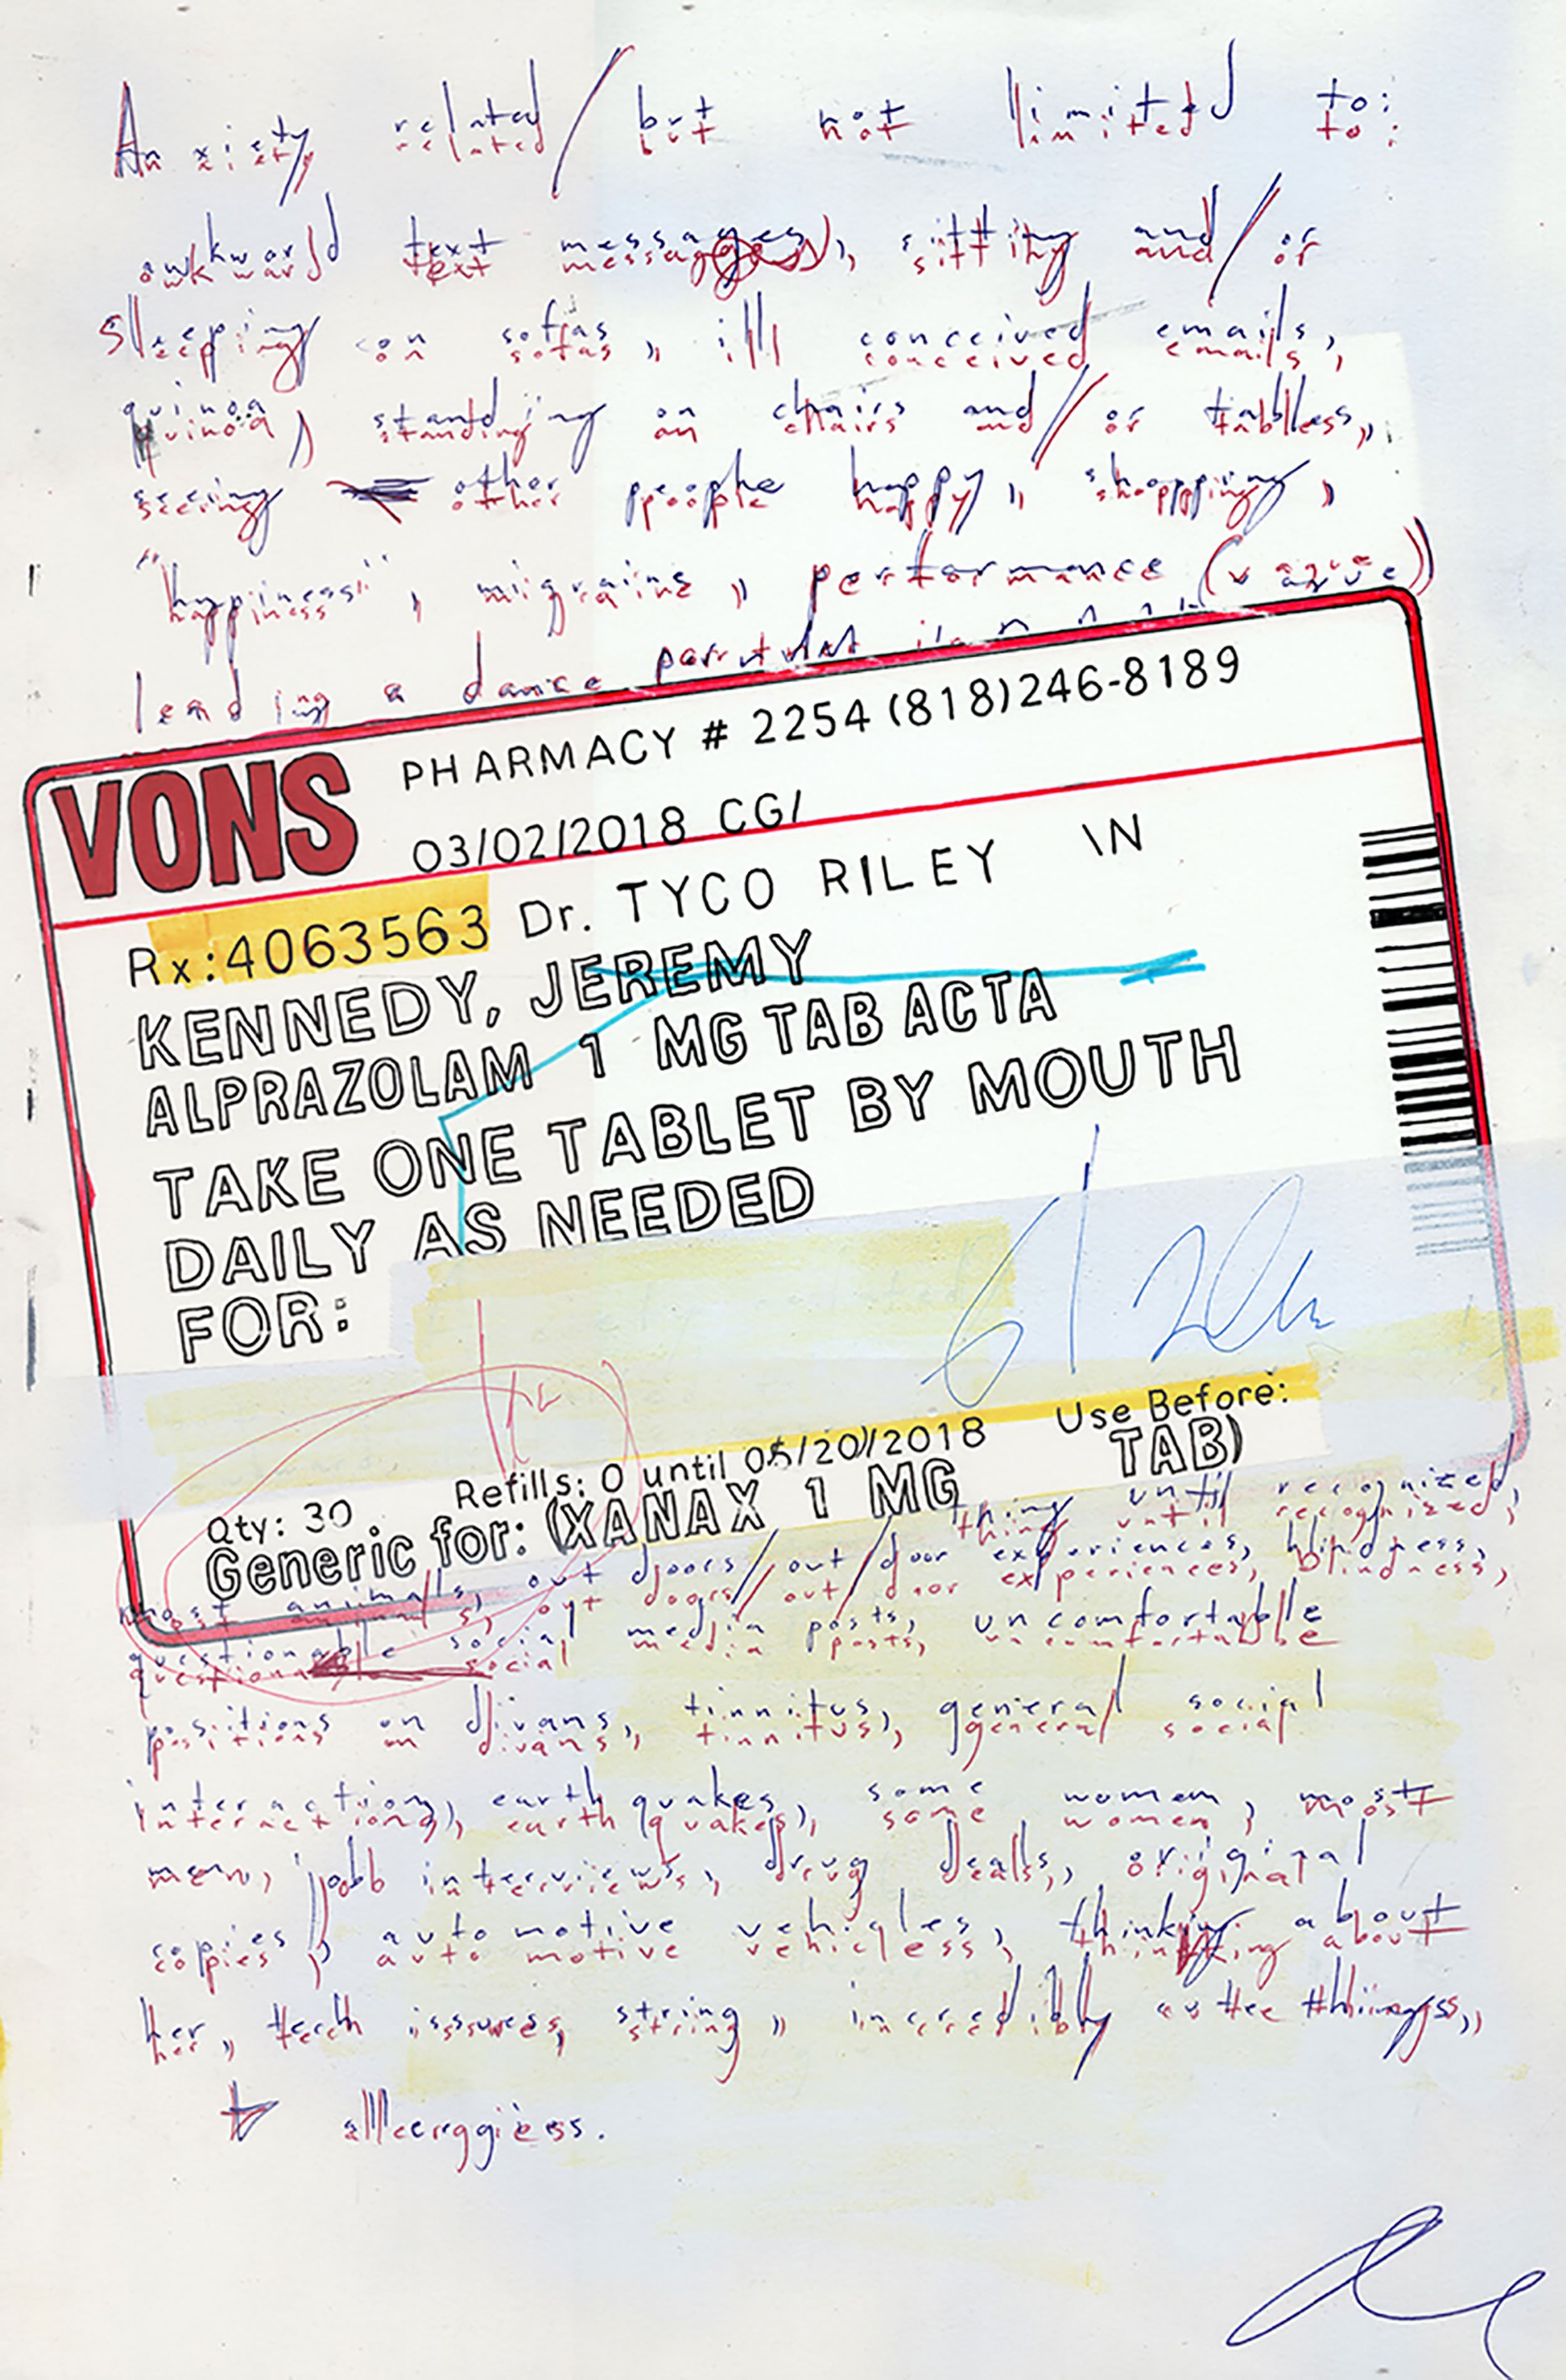 Anxiety related/but not limited to:
awkward text messages, sitting and/or
sleeping on sofas, ill conceived emails,
quinoa, standing on chairs and/or tables,
seeing other people happy, shopping,
"happiness", migraine, performance (vague)
leading a dance
VONS PHARMACY # 2254 (818)246-8189
03/02/2018 CG/
Rx:4063563 Dr. TYCO RILEY \N
KENNEDY, JEREMY
ALPRAZOLAM 1 MG TAB ACTA
TAKE ONE TABLET BY MOUTH
DAILY AS NEEDED
FOR:
Qty: 30 Refills: 0 until 05/20/2018 Use Before:
Generic for: (XANAX 1 MG TAB)
thing until recognized,
most animals, out doors/out/door experiences, blindness,
questionable social media posts, uncomfortable
positions on divans, tinnitus, general social
interaction, earth quakes, some women, most
men, job interviews, drug deals, original
copies, auto motive vehicles, thinking about
her, teeth issues, string, incredibly cutee things,
allergies.